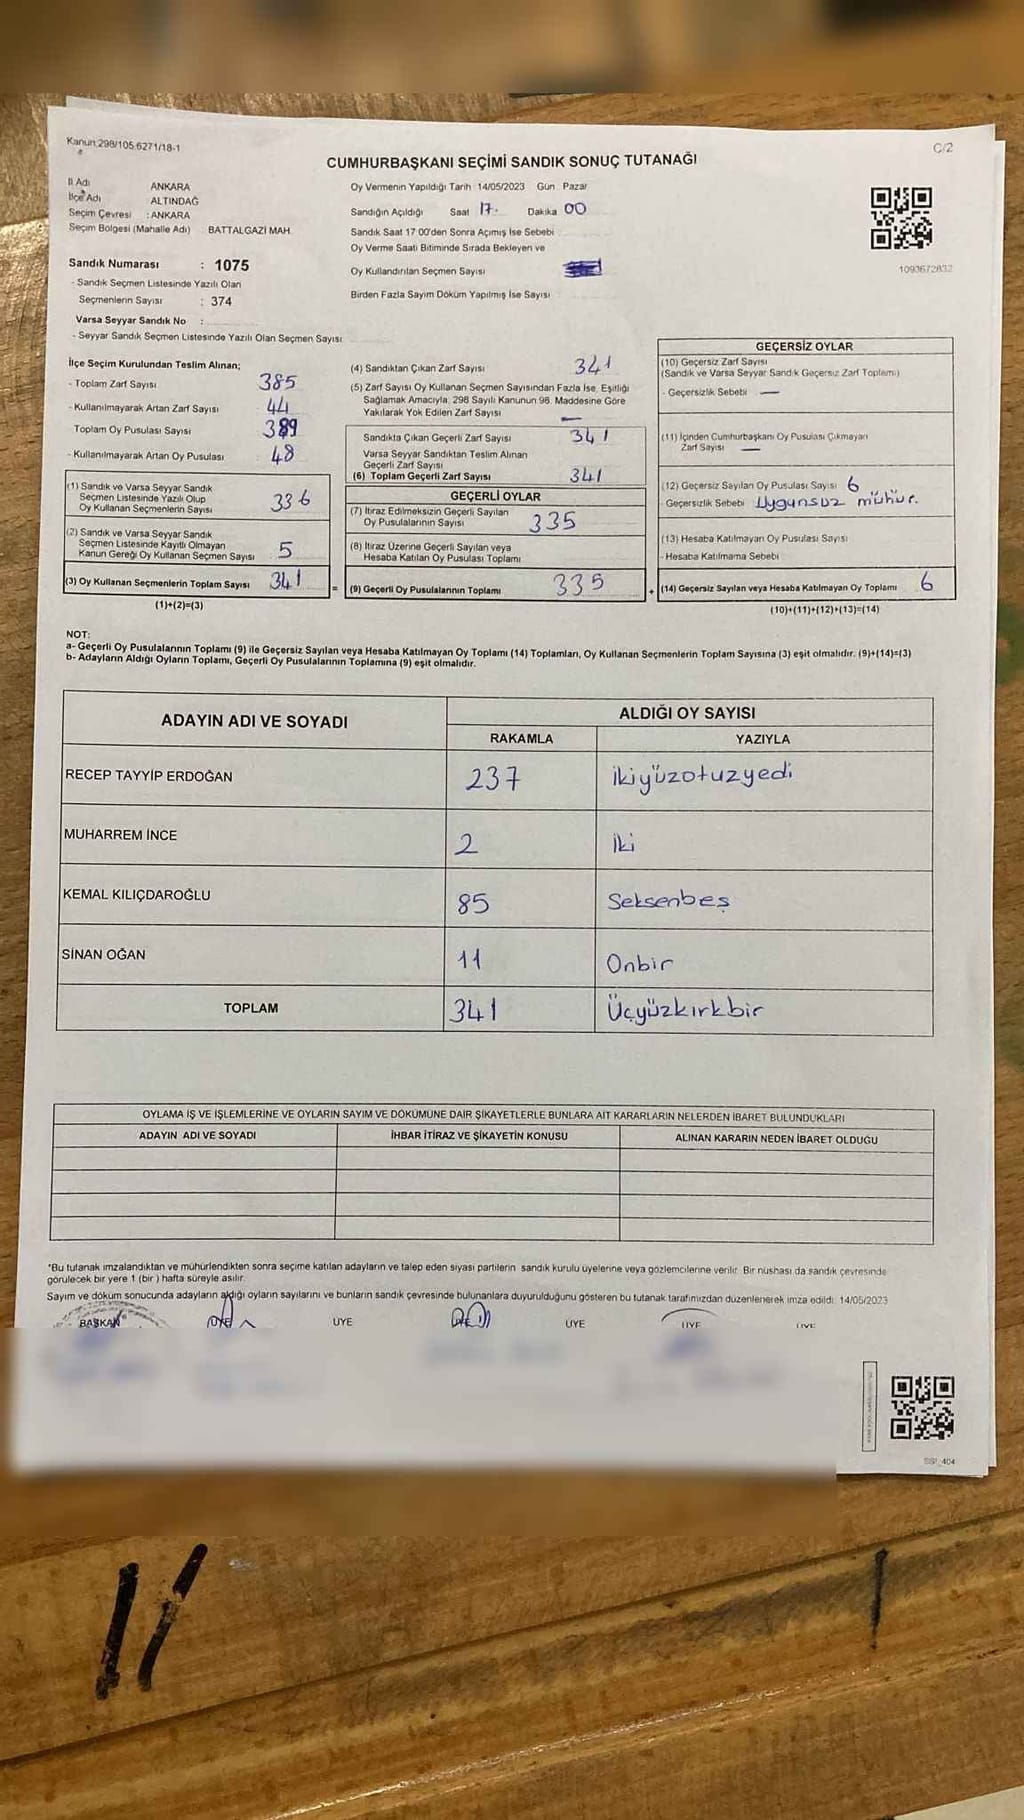 Kanun 298/105.6271/18-1
C/2
CUMHURBAŞKANI SEÇİMİ SANDIK SONUÇ TUTANAĞI
İl Adı ANKARA
İlçe Adı ALTINDAĞ
Seçim Çevresi : ANKARA
Seçim Bölgesi (Mahalle Adı) BATTALGAZİ MAH.
Sandık Numarası : 1075
- Sandık Seçmen Listesinde Yazılı Olan
Seçmenlerin Sayısı : 374
Varsa Seyyar Sandık No :
- Seyyar Sandık Seçmen Listesinde Yazılı Olan Seçmen Sayısı
Oy Vermenin Yapıldığı Tarih 14/05/2023 Gün Pazar
Sandığın Açıldığı Saat 17. Dakika 00
Sandık Saat 17 00'den Sonra Açımış İse Sebebi
Oy Verme Saati Bitiminde Sırada Bekleyen ve
Oy Kullandırılan Seçmen Sayısı
Birden Fazla Sayım Döküm Yapılmış İse Sayısı
1093672832
İlçe Seçim Kurulundan Teslim Alınan;
- Toplam Zarf Sayısı 385
- Kullanılmayarak Artan Zarf Sayısı 44
Toplam Oy Pusulası Sayısı 389
- Kullanılmayarak Artan Oy Pusulası 48
(1) Sandık ve Varsa Seyyar Sandık
Seçmen Listesinde Yazılı Olup
Oy Kullanan Seçmenlerin Sayısı 336
(2) Sandık ve Varsa Seyyar Sandık
Seçmen Listesinde Kayıtlı Olmayan
Kanun Gereği Oy Kullanan Seçmen Sayısı 5
(3) Oy Kullanan Seçmenlerin Toplam Sayısı 341 =
(1)+(2)=(3)
(4) Sandıktan Çıkan Zarf Sayısı 341
(5) Zarf Sayısı Oy Kullanan Seçmen Sayısından Fazla İse, Eşitliği
Sağlamak Amacıyla; 298 Sayılı Kanunun 98. Maddesine Göre
Yakılarak Yok Edilen Zarf Sayısı —
Sandıkta Çıkan Geçerli Zarf Sayısı 341
Varsa Seyyar Sandıktan Teslim Alınan
Geçerli Zarf Sayısı
(6) Toplam Geçerli Zarf Sayısı 341
GEÇERLİ OYLAR
(7) İtiraz Edilmeksizin Geçerli Sayılan
Oy Pusulalarının Sayısı 335
(8) İtiraz Üzerine Geçerli Sayılan veya
Hesaba Katılan Oy Pusulası Toplamı
(9) Geçerli Oy Pusulalarının Toplamı 335 +
GEÇERSİZ OYLAR
(10) Geçersiz Zarf Sayısı
(Sandık ve Varsa Seyyar Sandık Geçersiz Zarf Toplamı)
- Geçersizlik Sebebi —
(11) İçinden Cumhurbaşkanı Oy Pusulası Çıkmayan
Zarf Sayısı —
(12) Geçersiz Sayılan Oy Pusulası Sayısı 6
- Geçersizlik Sebebi Uygunsuz mühür.
(13) Hesaba Katılmayan Oy Pusulası Sayısı
- Hesaba Katılmama Sebebi
(14) Geçersiz Sayılan veya Hesaba Katılmayan Oy Toplamı 6
(10)+(11)+(12)+(13)=(14)
NOT:
a- Geçerli Oy Pusulalarının Toplamı (9) ile Geçersiz Sayılan veya Hesaba Katılmayan Oy Toplamı (14) Toplamları, Oy Kullanan Seçmenlerin Toplam Sayısına (3) eşit olmalıdır. (9)+(14)=(3)
b- Adayların Aldığı Oyların Toplamı, Geçerli Oy Pusulalarının Toplamına (9) eşit olmalıdır.
ADAYIN ADI VE SOYADI ALDIĞI OY SAYISI
RAKAMLA YAZIYLA
RECEP TAYYİP ERDOĞAN 237 ikiyüzotuzyedi
MUHARREM İNCE 2 iki
KEMAL KILIÇDAROĞLU 85 Seksenbeş
SİNAN OĞAN 11 Onbir
TOPLAM 341 Üçyüzkırkbir
OYLAMA İŞ VE İŞLEMLERİNE VE OYLARIN SAYIM VE DÖKÜMÜNE DAİR ŞİKAYETLERLE BUNLARA AİT KARARLARIN NELERDEN İBARET BULUNDUKLARI
ADAYIN ADI VE SOYADI İHBAR İTİRAZ VE ŞİKAYETİN KONUSU ALINAN KARARIN NEDEN İBARET OLDUĞU
*Bu tutanak imzalandıktan ve mühürlendikten sonra seçime katılan adayların ve talep eden siyasi partilerin sandık kurulu üyelerine veya gözlemcilerine verilir. Bir nüshası da sandık çevresinde
görülecek bir yere 1 (bir ) hafta süreyle asılır.
Sayım ve döküm sonucunda adayların aldığı oyların sayılarını ve bunların sandık çevresinde bulunanlara duyurulduğunu gösteren bu tutanak tarafımızdan düzenlenerek imza edildi. 14/05/2023
BAŞKAN ÜYE ÜYE ÜYE ÜYE ÜYE ÜYE